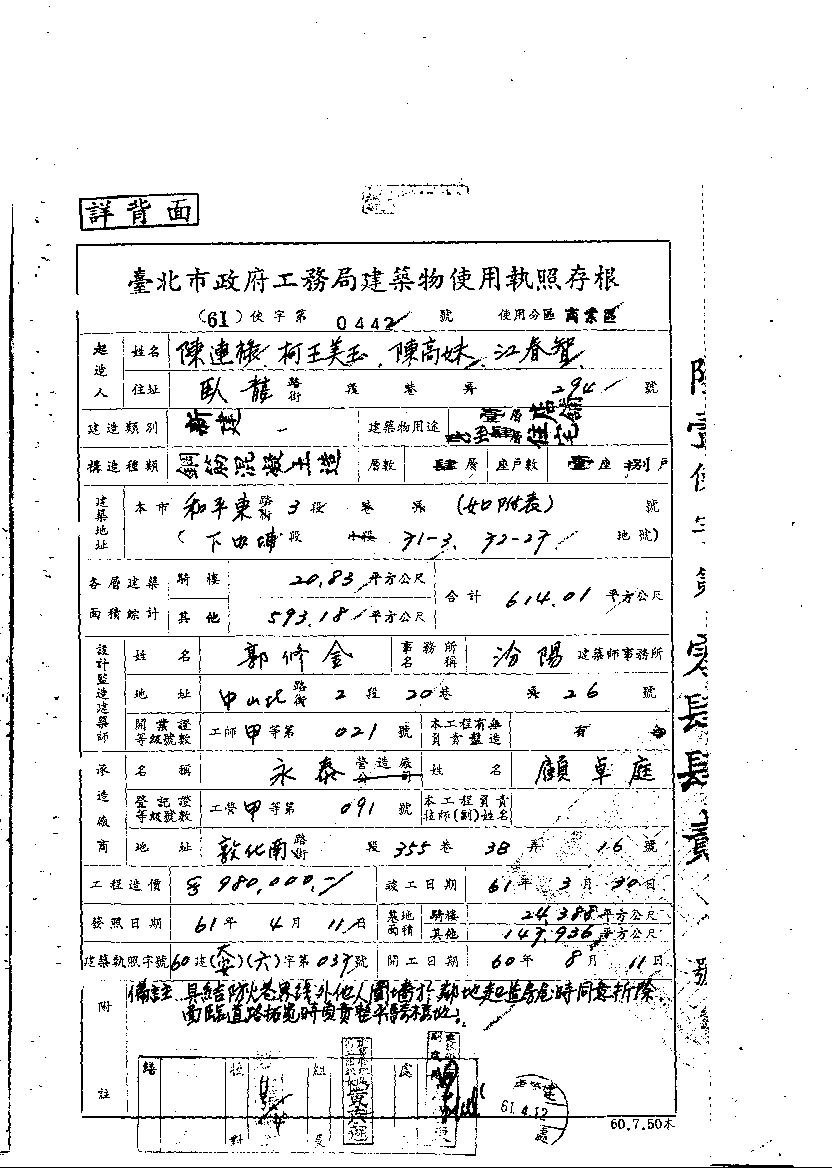 詳背面
臺北市政府工務局建築物使用執照存根
(61)使字第 0442 號 使用分區 商業區
起造人 姓名 陳連祿 柯王美玉 、陳高妹、江春智
住址 臥龍 路街 段 巷 弄 294 號
建造類別 新建 建築物用途 壹層店舖 貳至肆層住宅
構造種類 鋼筋混凝土造 層數 肆層 座戶數 壹座 捌戶
建築地址 本市 和平東 路街 3 段 巷 弄 (如附表) 號
( 下內埔 段 小段 31-3、32-27 地號)
各層建築面積綜計 騎樓 20.83 平方公尺 合計 614.01 平方公尺
其他 593.18 平方公尺
設計監造建築師 姓名 郭修金 事務所名稱 汾陽 建築師事務所
地址 中山北 路街 2 段 20 巷 弄 26 號
開業證等級號數 工師 甲 等第 021 號 本工程有無負責監造 有
承造廠商 名稱 永泰 營造廠公司 姓名 顧卓庭
登記證等級號數 工營 甲 等第 091 號 本工程負責技師(副)姓名
地址 敦化南 路街 段 355 巷 38 弄 16 號
工程造價 980,000.- 竣工日期 61 年 3 月 30 日
發照日期 61 年 4 月 11 日 基地面積 騎樓 24.388 平方公尺
其他 147.936 平方公尺
建築執照字號 60 建 (六)字第 039 號 開工日期 60 年 8 月 11 日
附註
備註 具結防火巷界線外他人圍墻於鄰地起造房屋時同意拆除
面臨道路拓寬時負責整平
組長
處
61.4.12
60.7.50本